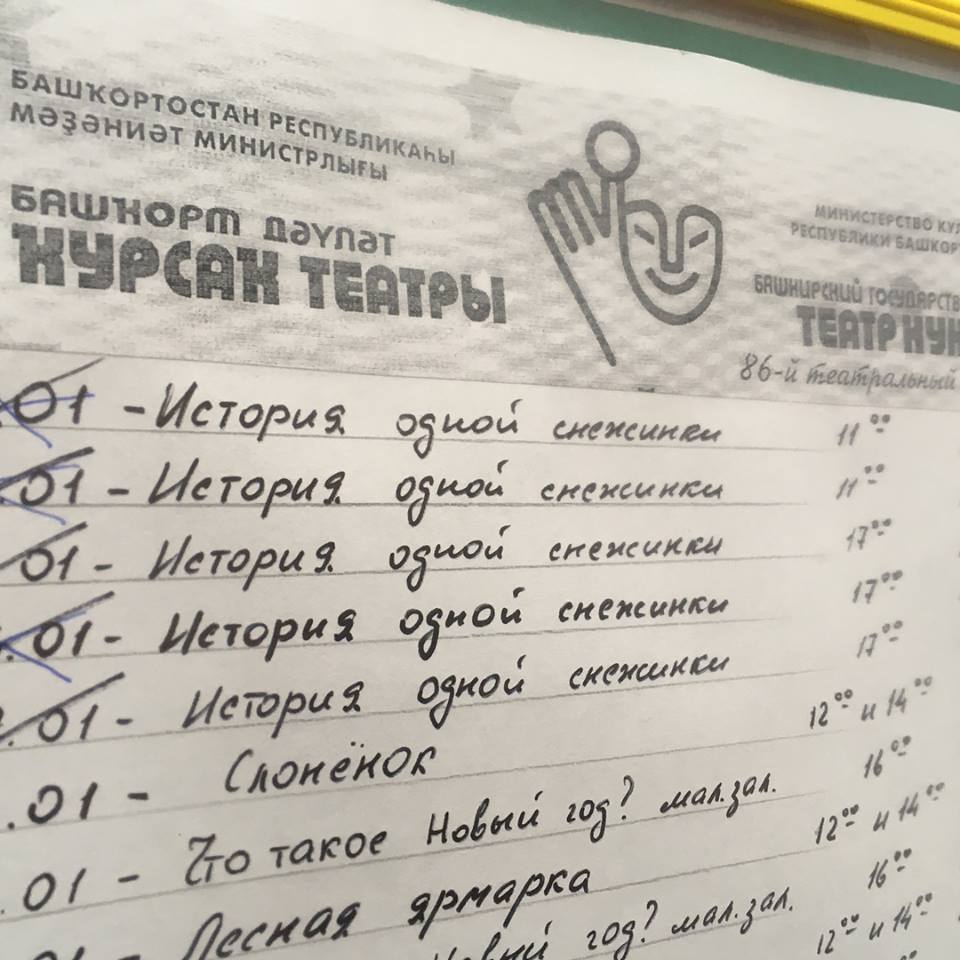 БАШҠОРТОСТАН РЕСПУБЛИКАҺЫ
МӘҘӘНИӘТ МИНИСТРЛЫҒЫ
БАШҠОРТ ДӘҮЛӘТ
ҠУРСАҠ ТЕАТРЫ
МИНИСТЕРСТВО
РЕСПУБЛИКИ
БАШКИРСКИЙ
ТЕАТР
86-й театральный
01 - История одной снежинки 11 00
01 - История одной снежинки 11 00
01 - История одной снежинки 17 00
.01 - История одной снежинки 17 00
.01 - История одной снежинки 17 00
.01 - Слонёнок 12 00 и 14 00
.01 - Что такое Новый год? мал.зал. 16 00
01 - Лесная ярмарка 12 00 и 14 00
Новый год? мал.зал. 16 00
12 00 и 14 00